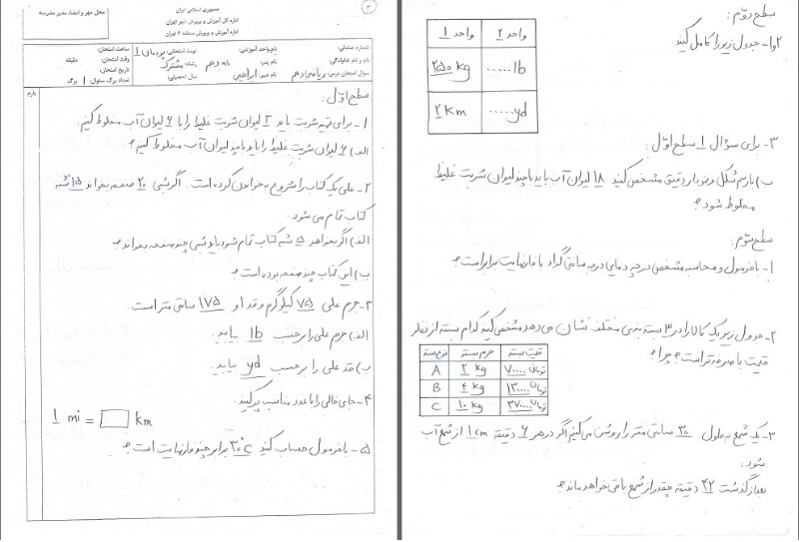 جمهوری اسلامی ایران
اداره کل آموزش و پرورش شهر تهران
اداره آموزش و پرورش منطقه ۶ تهران
محل مهر و امضاء مدیر مدرسه
۳
شماره صندلی:
نام و نام خانوادگی:
سوال امتحان درس: ریاضی دهم
نام واحد آموزشی:
نام پدر:
نام دبیر: ابراهیمی
نوبت امتحانی: پودمان ۱
پایه: دهم
رشته: مشترک
سال تحصیلی:
ساعت امتحان:
وقت امتحان: دقیقه
تاریخ امتحان:
تعداد برگ سئوال: ۱ برگ
بارم
سطح اول:
۱- برای تهیه شربت باید ۲ لیوان شربت غلیظ را با ۶ لیوان آب مخلوط کنیم.
الف) ۶ لیوان شربت غلیظ را باید با چند لیوان آب مخلوط کنیم؟
۲- علی یک کتاب را شروع به خواندن کرده است. اگر شبی ۲۰ صفحه بخواند ۱۵ شبه
کتاب تمام می شود.
الف) اگر بخواهد ۵ شبه کتاب تمام شود باید شبی چند صفحه بخواند؟
ب) این کتاب چند صفحه بوده است؟
۳- جرم علی ۷۵ کیلوگرم و قد او ۱۷۵ سانتی متر است.
الف) جرم علی را بر حسب lb بیابید.
ب) قد علی را بر حسب yd بیابید.
۴- جای خالی را با عدد مناسب پر کنید.
1 mi = km
۵- با فرمول حساب کنید ۳۰°c برابر چند فارنهایت است؟
سطح دوم:
۱و۲- جدول زیر را کامل کنید
واحد ۱ واحد ۲
۲۵۰ kg ......lb
۲ km ......yd
۳- برای سؤال ۱ سطح اول:
ب) با رسم شکل و نمودار دقیق مشخص کنید ۱۸ لیوان آب باید با چند لیوان شربت غلیظ
مخلوط شود؟
سطح سوم:
۱- با فرمول و محاسبه مشخص در چه دمایی درجه سانتی گراد با فارنهایت برابر است؟
۲- جدول زیر یک کالا را در ۳ بسته بندی مختلف نشان می دهد مشخص کنید کدام بسته از نظر
قیمت با صرفه تر است؟ چرا؟
نوع بسته جرم بسته قیمت بسته
A ۲ kg ۷۰۰۰۰ تومان
B ۴ kg ۱۳۰۰۰۰ تومان
C ۱۰ kg ۳۷۰۰۰۰ تومان
۳- یک شمع به طول ۳۰ سانتی متر را روشن می کنیم اگر در هر ۶ دقیقه ۱ cm از شمع آب
شود:
بعد از گذشت ۴۲ دقیقه چقدر از شمع باقی خواهد ماند؟